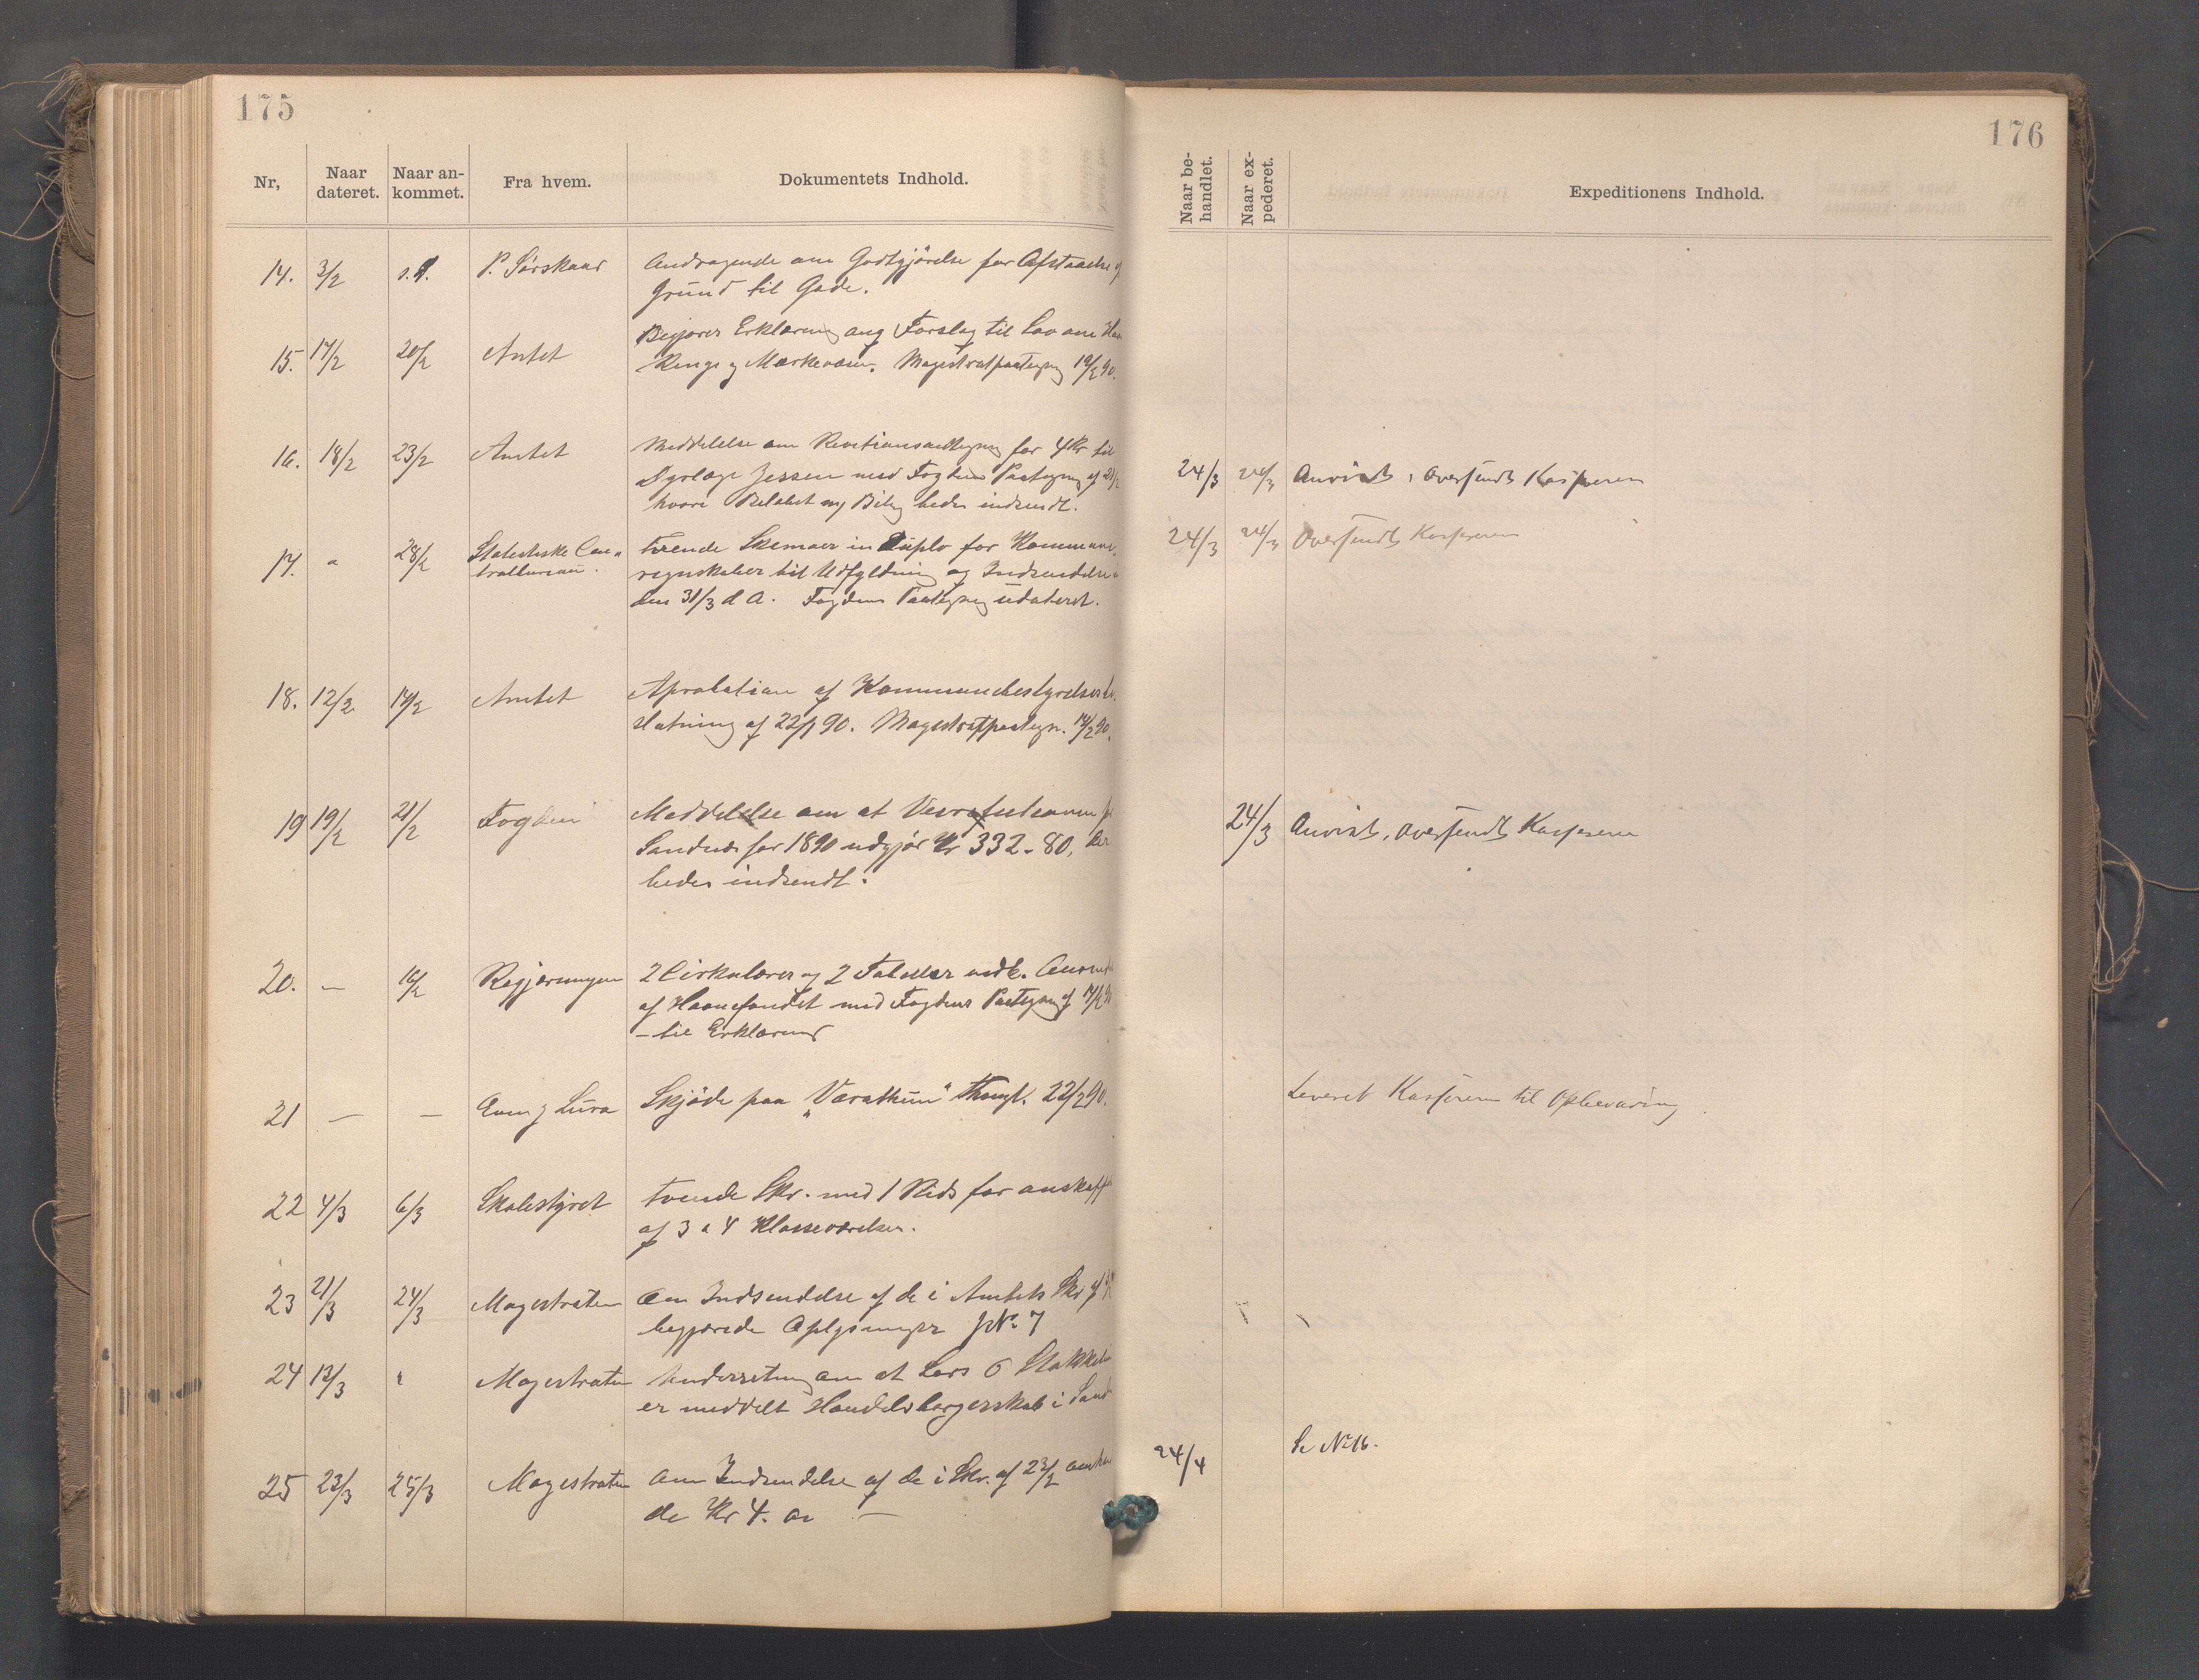 175
Nr,
Naar dateret.
Naar an-
kommet.
Fra hvem.
Dokumentets Indhold.
14. 3/2 s. d. P. Sörskaar Andragende om Godtgjörelse for Afstaaelse af
Grund til Gade.
15. 17/2 20/2 Amtet Begjærer Erklæring ang Forslag til Lov om
Rings og Mærkevæsen. Magistratpaategng 19/2 90.
16. 18/2 23/2 Amtet Meddelelse om Revisionsantegng for 4 Kr til
Dyrlæge Jessen med Fogdens Paategng af 21/2
hvori Beløbet og Bilag bedes indsendt.
17. " 28/2 Statistiske Cen-
tralbureau. tvende Skemaer in Duplo for Kommune-
regnskaber til Udfyldning og Indsendelse
den 31/3 d A. Fogdens Paategng udateret.
18. 12/2 14/2 Amtet Aprobation af Kommunebestyrelses be-
slutning af 22/1 90. Magistratpaategn. 14/2 90.
19 19/2 21/2 Fogden Meddelelse om at
Sandnes for 1890 udgjør Kr 332-80, der
bedes indsendt.
20. — 16/2 Regjeringen 2 Cirkulærer og 2 Tabeller vedk.
af med Fogdens Paategng af
- til Erklæring
21 — — Even J Lura Skjöde paa "Varatun" thingl. 22/2 90.
22 4/3 6/3 Skolestyret tvende Skr. med 1 Rids for anskaff
af 3 a 4 Klasseværelser.
23 21/3 24/3 Magistraten Om Indsendelse af de i Amtets Skr af
begjærede Oplysninger JNo 7
24 12/3 " Magistraten Underretning om at Lars O
er meddelt Handelsborgerskab i Sand
25 23/3 25/3 Magistraten Om Indsendelse af de i Skr. af 23/2
de Kr 4. 00 —
176
Naar be-
handlet.
Naar ex-
pederet.
Expeditionens Indhold.
24/3 24/3 Anvist, oversendt Kasseren
24/3 24/3 Oversendt Kasseren
24/3 Anvist, oversendt Kasseren
Leveret Kasseren til Opbevaring.
24/4 Se No 16.